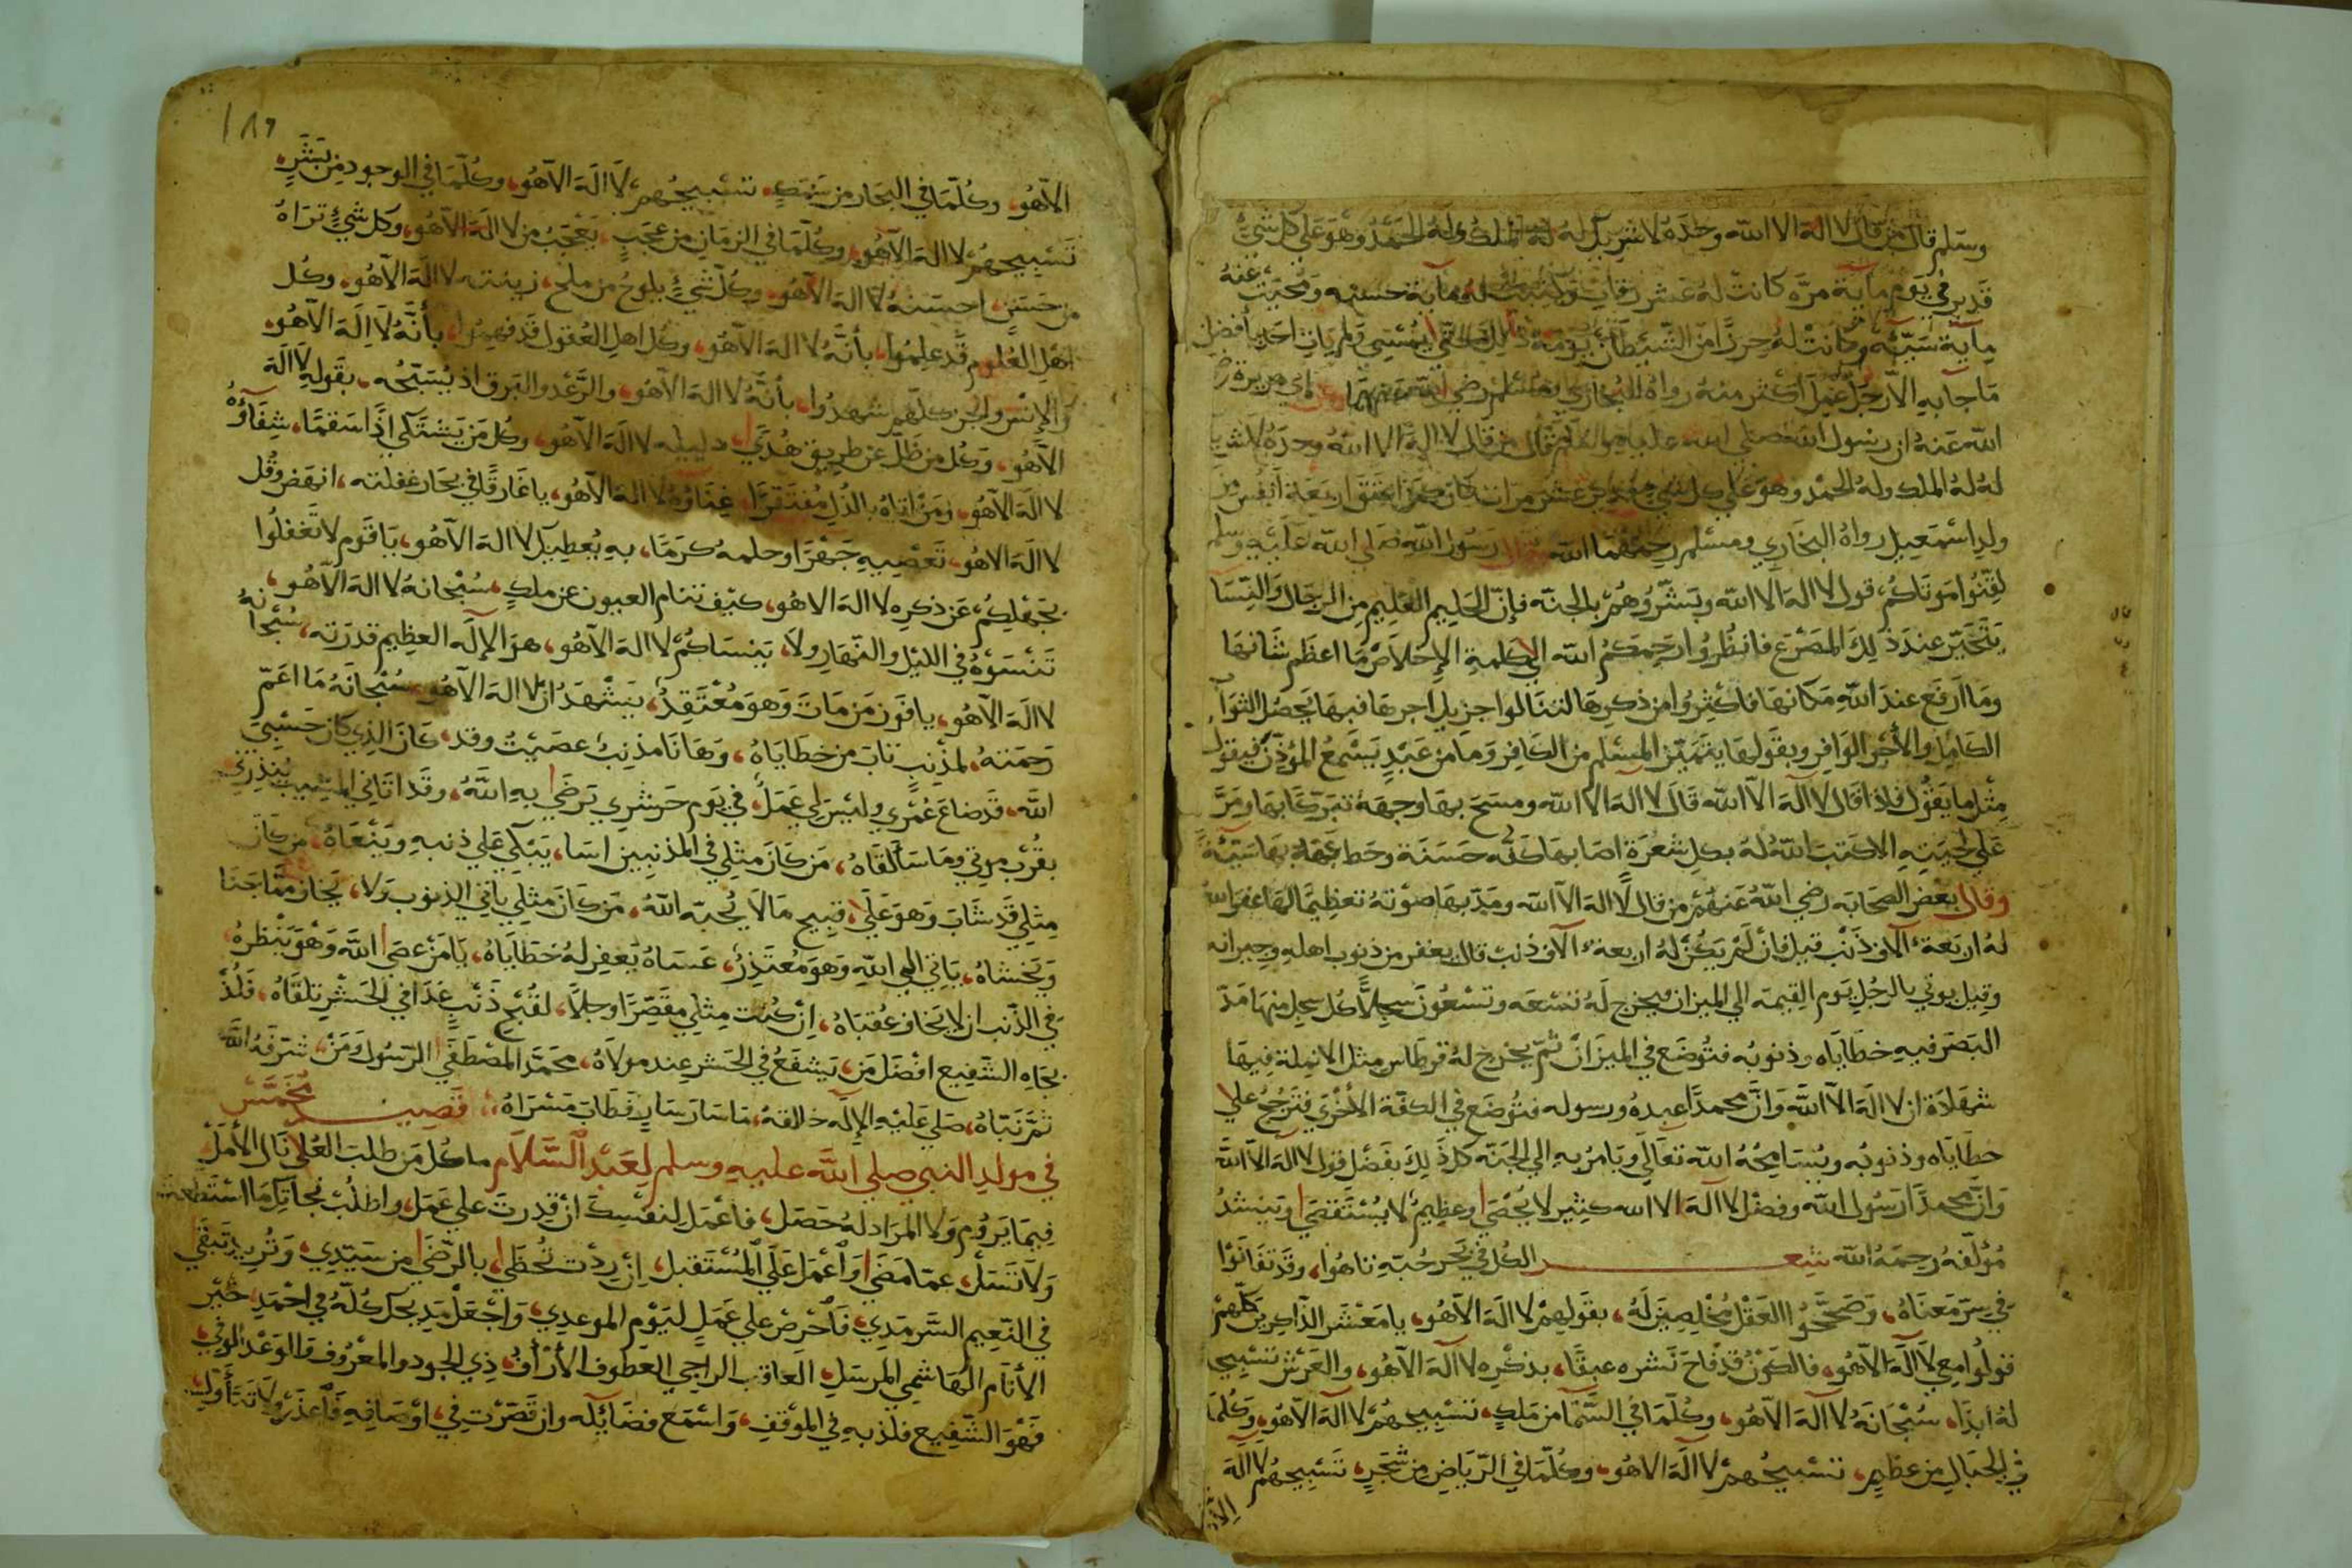 وسلم قال من قال لا اله الا الله وحده لا شريك له له الملك وله الحمد وهو على كل شيء
قدير في يوم ماية مرة كانت له عشر رقاب وكتبت له ماية حسنه ومحيت عنه
ماية سيئه وكانت له حرزا من الشيطان يومه ذلك حتى يمسي ولم يات احد بأفضل
ما جا به الا رجل عمل اكثر منه رواه البخاري ومسلم رضي الله عنهما وعن ابي هريرة رضي
الله عنه ان رسول الله صلى الله عليه وسلم قال من قال لا اله الا الله وحده لا شريك
له له الملك وله الحمد وهو على كل شي قدير عشر مرات كان كمن اعتق اربعة أنفس من
ولد اسمعيل رواه البخاري ومسلم رحمهما الله قال رسول الله صلى الله عليه وسلم
لقنوا موتاكم قول لا اله الا الله وبشروهم بالجنة فإن الحليم العليم من الرجال والنسا
يتحير عند ذلك المصرع فانظروا رحمكم الله الى كلمة الإخلاص ما اعظم شانها
وما ارفع عند الله مكانها فاكثروا من ذكرها لتنالوا جزيل اجرها فبها يحصل الثواب
الكامل والأجر الوافر وبقولها يتميز المسلم من الكافر وما من عبد يسمع المؤذن فيقول
مثل ما يقول فاذا قال لا اله الا الله قال لا اله الا الله ومسح بها وجهه تبركا بها ومر
على لحيته الا كتب الله له بكل شعرة اصابها كفه حسنة وحط عنه بها سيئة
وقال بعض الصحابه رضي الله عنهم من قال لا اله الا الله ومد بها صوته تعظيما لها غفر الله
له اربعة آلاف ذنب قيل فان لم يكن له اربعة آلاف ذنب قال يغفر من ذنوب اهله وجيرانه
وقيل يوتي بالرجل يوم القيمه الي الميزان فيخرج له تسعه وتسعون سجلا كل سجل منها مد
البصر فيه خطاياه وذنوبه فتوضع في الميزان ثم يخرج له قرطاس مثل الانملة فيها
شهادة ان لا اله الا الله وان محمدا عبده ورسوله فتوضع في الكفة الأخرى فترجح علي
خطاياه وذنوبه ويسامحه الله تعالى ويامر به الي الجنه كل ذلك بفضل قول لا اله الا الله
وان محمدا رسول الله وفضل لا اله الا الله كثير لا يحصى وعظيم لا يستقصى وينشد
مؤلفه رحمه الله شعر الكل في بحر حبه تاهوا، وقد تفانوا
في سر معناه، وصححوا العقل مخلصين له، بقولهم لا اله الا هو، يا معشر الذاكرين كلهم
قولوا معي لا اله الا هو، فالكون قد فاح نشره عبقا، بذكره لا اله الا هو، والعرش تسبيحا
له ابدا، سبحانه لا اله الا هو، وكلما في السما من ملك، تسبيحهم لا اله الا هو، وكلما
في الجبال من عظيم، تسبيحهم لا اله الا هو، وكلما في الرياض من شجر، تسبيحهم لا اله
الا هو
١٨٩
الا هو، وكلما في البحار من سمك، تسبيحهم لا اله الا هو، وكلما في الوجود من بشر،
تسبيحهم لا اله الا هو، وكلما في الزمان من عجب، يعجب من لا اله الا هو، وكل شيء تراه
من حسن، احسنه لا اله الا هو، وكل شيء يلوح من ملح، زينته لا اله الا هو، وكل
اهل العلوم قد علموا، بأنه لا اله الا هو، وكل اهل العقول قد فهموا، بأنه لا اله الا هو،
والإنس والجن كلهم شهدوا، بأنه لا اله الا هو، والرعد والبرق اذ يسبحه، بقوله لا اله
الا هو، وكل من ظل عن طريق هدى، دليله لا اله الا هو، وكل من يشتكي اذا سقما، شفاؤه
لا اله الا هو، ومن اتاه بالذل مفتقرا، غناؤه لا اله الا هو، يا غارقا في بحار غفلته، انهض وقل
لا اله الا هو، تعصيه جهرا وحلمه كرما، به يعطيك لا اله الا هو، يا قوم لا تغفلوا
بجهلكم عن ذكره لا اله الا هو، كيف تنام العيون عن ملك، سبحانه لا اله الا هو،
تنسوه في الليل والنهار ولا، ينساكم لا اله الا هو، هو الإله العظيم قدرته، سبحانه
لا اله الا هو، يا فوز من مات وهو معتقد، يشهد ان لا اله الا هو، سبحانه ما اعم
رحمته، لمذنب تاب من خطاياه، وها نا مذنب عصيت وقد، كان الذي كان حسبي
الله، قد ضاع عمري وليس لي عمل، في يوم حشري ترضى به الله، وقد اتاني المشيب ينذرني
بقرب موتي وما سألقاه، من كان مثلي في المذنبين اسا، يبكي على ذنبه وينعاه، من كان
مثلي قد شاب وهو علي، قبيح ما لا يحبه الله، من كان مثلي ياتي الذنوب ولا، يخاف مما جنا
ويخشاه، ياتي الي الله وهو معتذر، عساه يغفر له خطاياه، يا من عصى الله وهو ينظره
في الذنب ان لا يخاف عقباه، ان كنت مثلي مقصرا وجلا، لقبح ذنب غدا في الحشر تلقاه، فلذ
بجاه الشفيع افضل من، يشفع في الحشر عند مولاه، محمد المصطفى الرسول ومن، شرفه الله
ثم نباه، صلي عليه الإله خالقه، ما سار سار فطاب مسراه، قصيد مخمس
في مولد النبي صلى الله عليه وسلم لعبد السلام ما كل من طلب العلى نال الأمل
فيما يروم ولا المراد له حصل، فاعمل لنفسك ان قدرت على عمل، واطلب نجاتك ما استطعت
ولا تسل، عما مضى واعمل على المستقبل، ان ردت تحظى، بالرضى من سيدي، وتريد تبقى
في النعيم السرمدي، فاحرص على عمل ليوم الموعدي، واجعل مديحك كله في احمد، خير
الأنام الهاشمي المرسل، العاقب الراجي العطوف الأرأف، ذي الجود والمعروف والوعد الوفي
فهو الشفيع فلذ به في الموقف، واسمع فضائله وان قصرت في، اوصافه فاعذر ولا تتأول،